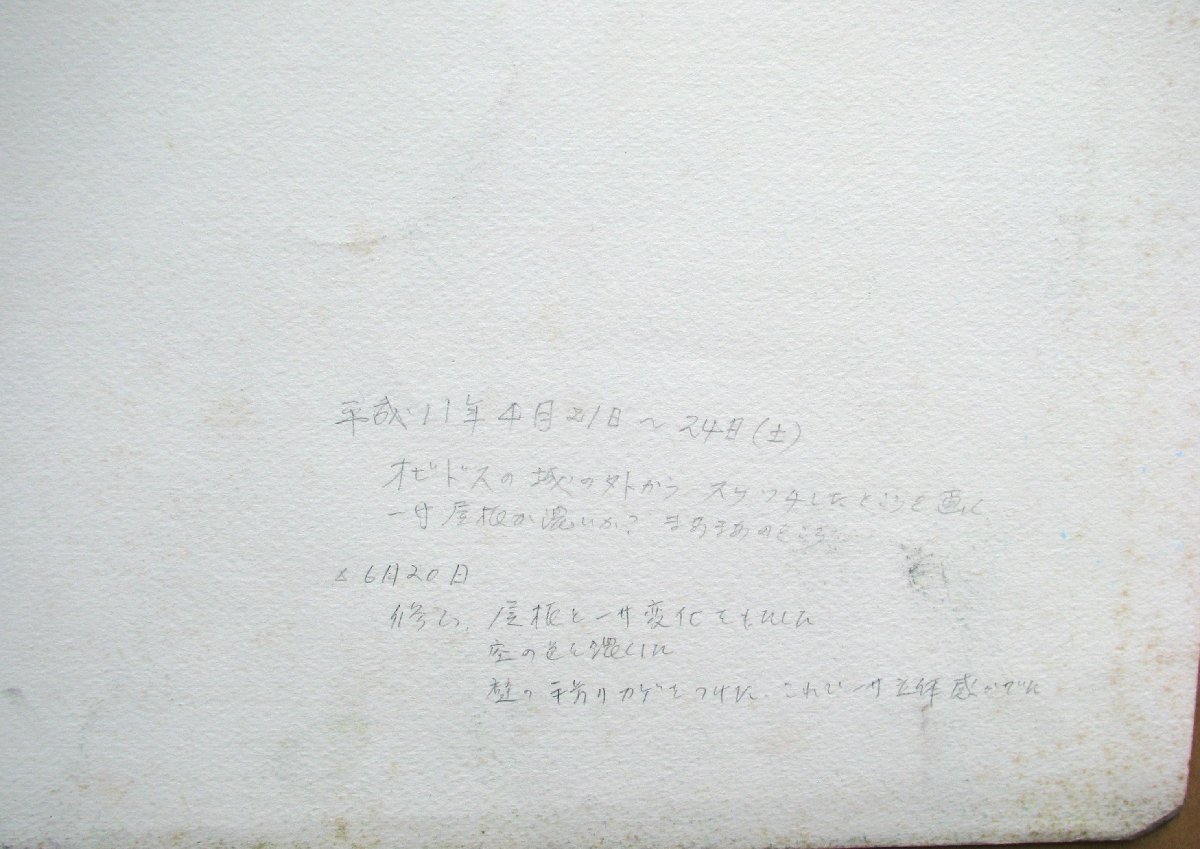 平成11年4月21日〜24日(土)
オビドスの城の外からスケッチしたところを画く
一寸屋根が濃いか? まあまあのところ
△6月20日
修正、屋根を一寸変化をもたした
空の色を濃くした
壁の手前りカゲをつけた。これで一寸立体感がでた